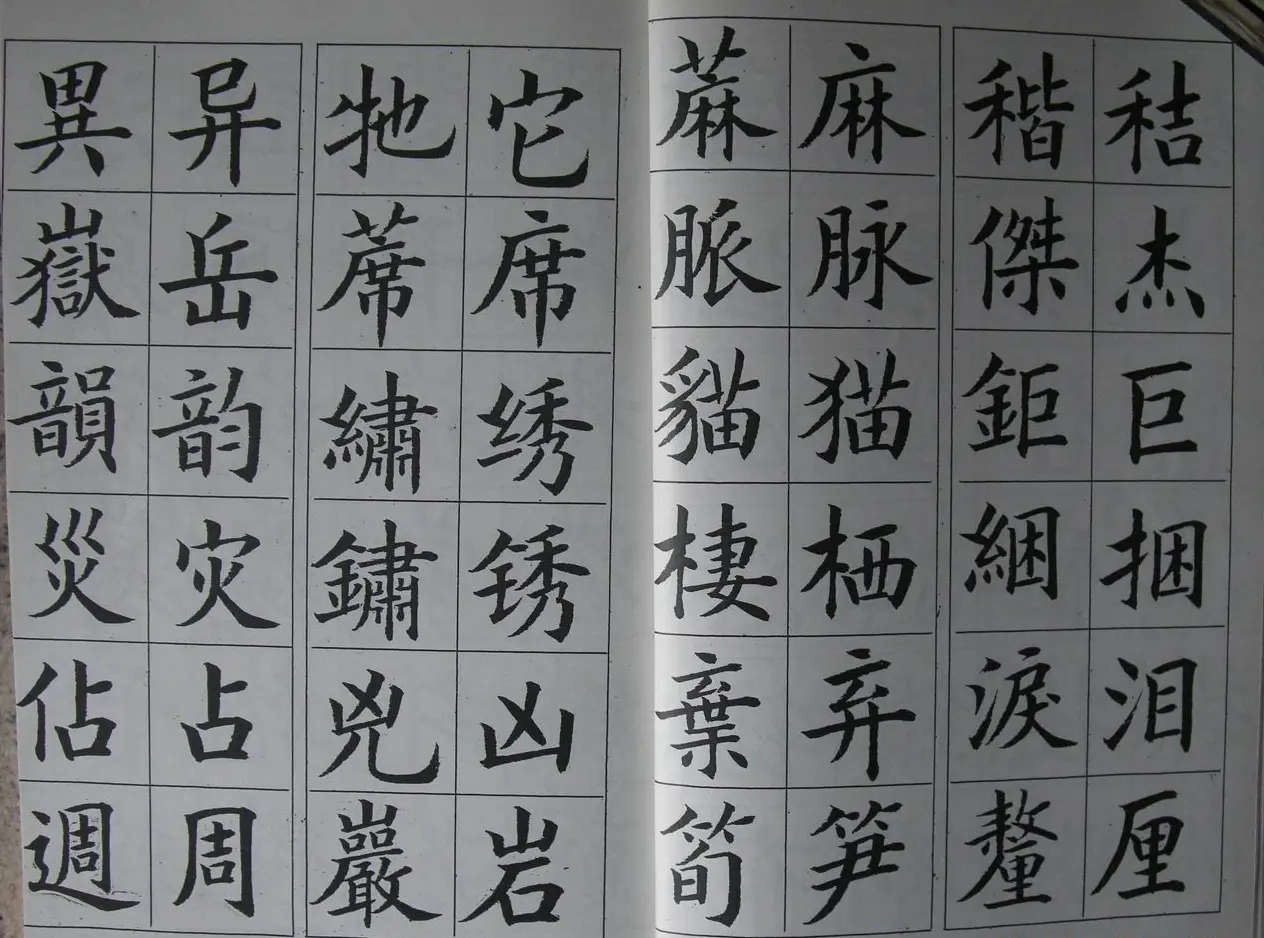 秸杰巨捆泪厘
稭傑鉅綑淚釐
麻脉猫栖弃笋
蔴脈貓棲棄筍
它席绣锈凶岩
牠蓆繡鏽兇巖
异岳韵灾占周
異嶽韻災佔週